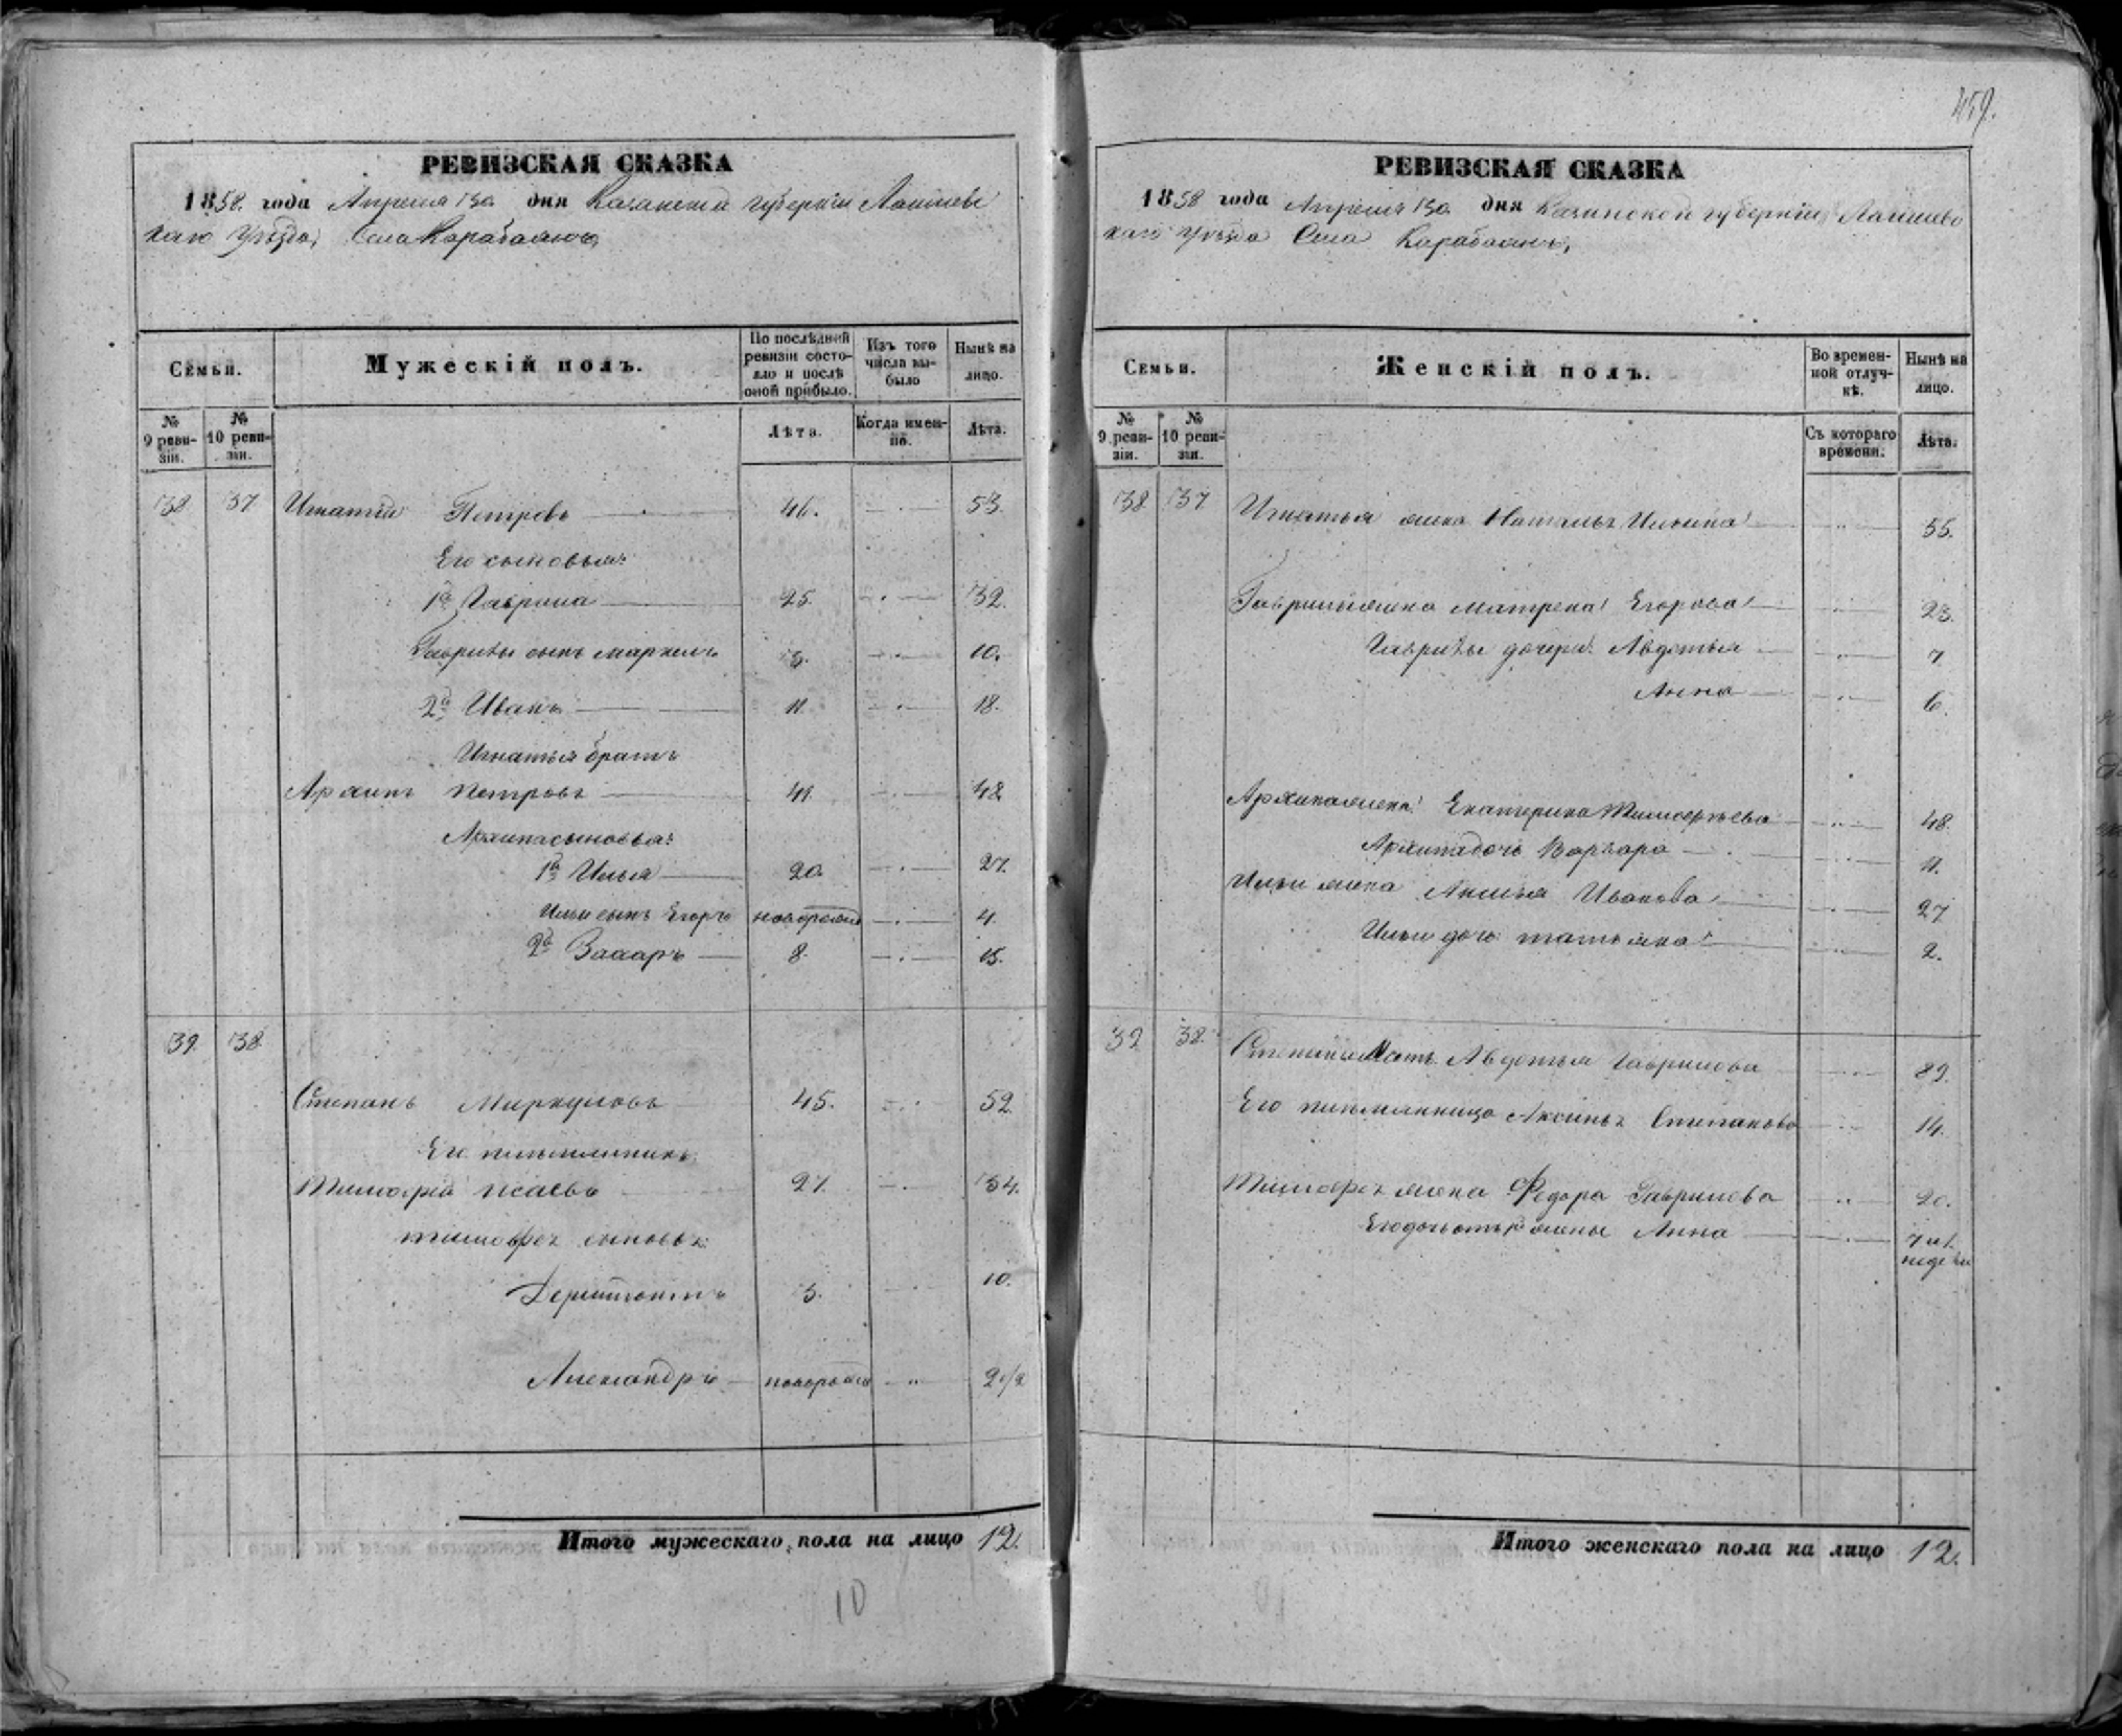 459.
РЕВИЗСКАЯ СКАЗКА
1858. года Апреля дня Казанской губернiи Лаишевс
каго уѣзда, Села Карабаяны
Семьи.
Мужескiй полъ.
По послѣдней ревизiи состояло и послѣ оной прибыло.
Изъ того числа выбыло
Нынѣ на лицо.
№ 9 ревизiи.
№ 10 ревизiи.
Лѣта.
Когда именно.
Лѣта.
38 37 Игнатiй Петровъ 46. 53.
Его сыновья:
1й Гаврила 25. 32.
Гаврилы сынъ Маркелъ 3. 10.
2й Иванъ 11. 18.
Игнатья братъ
Архипъ Петровъ 41. 48.
Архипа сыновья:
1й Илья 20. 27.
Ильи сынъ Егоръ новорожд 4.
2й Захаръ 8. 15.
39. 38.
Степанъ Меркуловъ 45. 52.
Его племянникъ
Тимофей Исаевъ 27. 34.
Тимофея сыновья:
3. 10.
Александръ новорожд " 2 1/2
Итого мужескаго пола на лицо 12.
10
РЕВИЗСКАЯ СКАЗКА
1858 года Апреля дня Казанской губернiи Лаишевс
каго уѣзда Села Карабаяны,
Семьи.
Женскiй полъ.
Во временной отлучкѣ.
Нынѣ на лицо.
№ 9 ревизiи.
№ 10 ревизiи.
Съ котораго времени.
Лѣта.
38 37 Игнатья жена Наталья Ильина " 55.
Гаврилы жена Матрена Егорова " 23.
Гаврилы дочери: Авдотья " 7
Анна " 6.
Архипа жена Екатерина " 48.
Архипа дочь Варвара " 11.
Ильи жена Иванова " 27
Ильи дочь Татьяна " 2.
39 38. Степана Мать Авдотья Гаврилова " 89.
Его племянница Аксинья Степанова " 14.
Тимофея жена Федора Гаврилова " 20.
Его дочь отъ жены Анна "
недели
Итого женскаго пола на лицо 12.